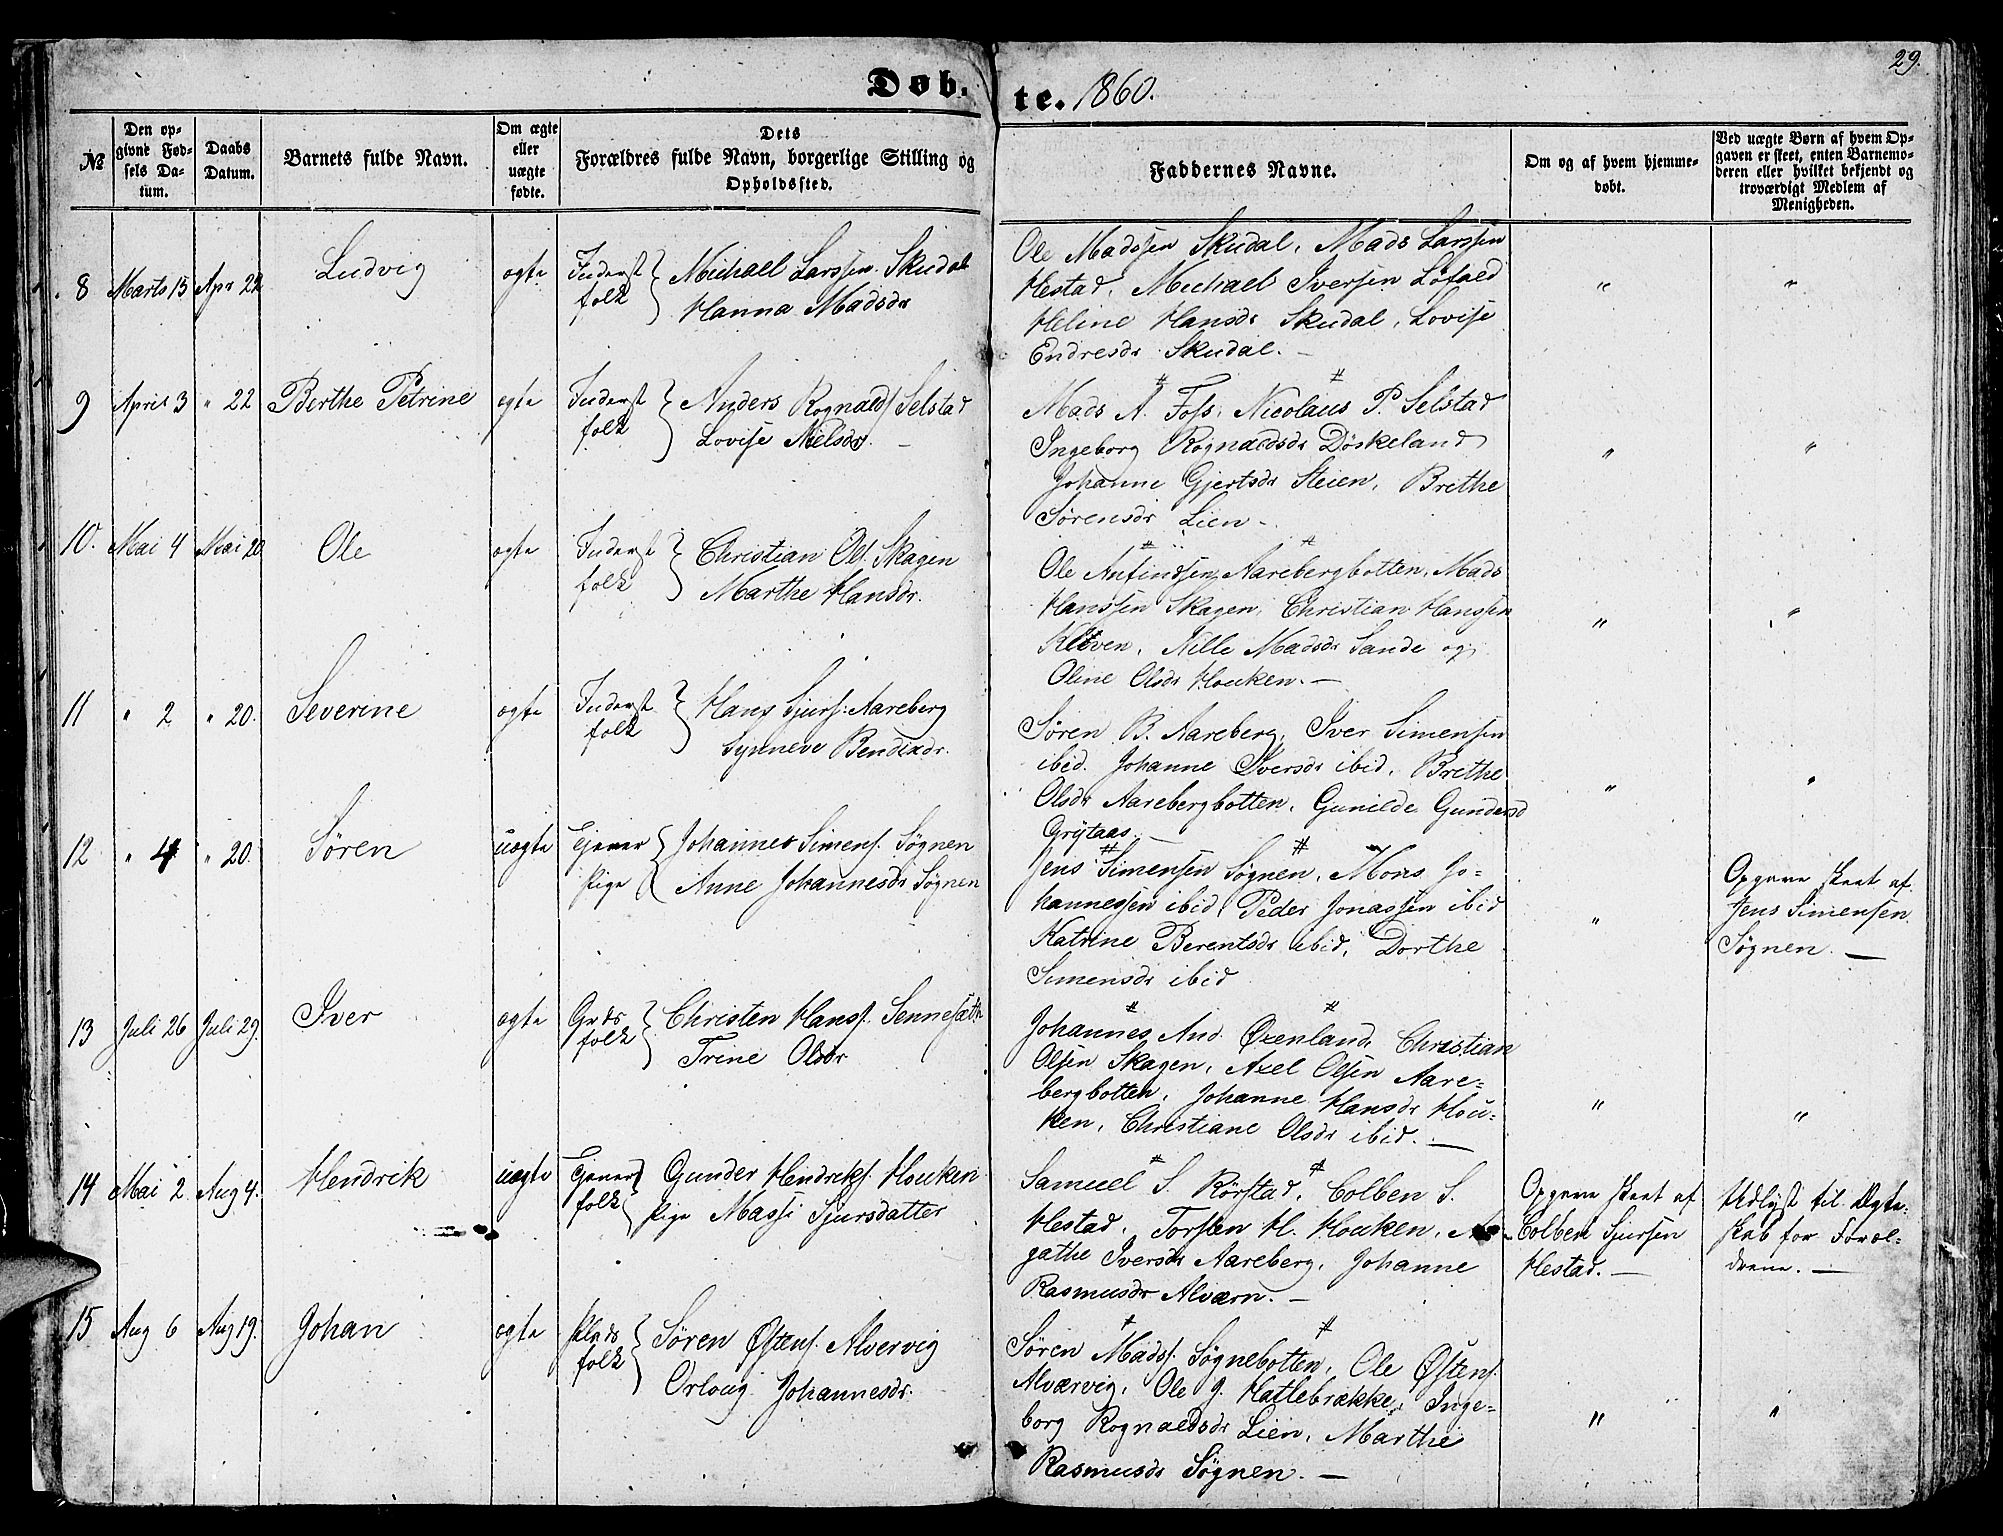 29.
Døb. te. 1860.
№
Den op-
givne Fød-
sels Da-
tum.
Daabs
Datum.
Barnets fulde Navn.
Om ægte
eller
uægte
fødte.
Dets
Forældres fulde Navn, borgerlige Stilling og
Opholdssted.
Faddernes Navne.
Om og af hvem hjemme-
døbt.
Ved uægte Børn af hvem Op-
gaven er skeet, enten Barnemo-
deren eller hvilket bekjendt og
troværdigt Medlem af
Menigheden.
8 Marts 15 Apr 22 Ludvig ægte Inderst
folk
Michael Larssen Skudal
Hanna Madsdr
Ole Madssen Skudal, Mads Larssen
Hestad, Michael Iversen Løfald
Heline Hansdr Skudal, Lovise
Endresdr Skudal. —
" "
9 April 3 " 22 Berthe Petrine ægte Inderst
folk
Anders Rognalds Selstad
Lovise Nielsdr. —
Mads A. Foss, Nicolaus P. Selstad
Ingeborg Rognaldsdr Døskeland
Johanne Gjertsdr Steien, Brethe
Sørensdr Lien -
" "
10. Mai 4 Mai 20 Ole ægte Inderst
folk
Christian Ols. Skagen
Marthe Hansdr.
Ole Anfindsen Aarebergbotten, Mads
Hanssen Skagen, Christian Hanssen
Kleven, Nille Madsdr Sande og
Oline Olsdr Houken. —
" "
11 " 2 " 20. Severine ægte Inderst
folk
Hans Sjurs. Aareberg
Synneve Bendixdr.
Søren B. Aareberg, Iver Simensen
ibid. Johanne Iversdr ibid, Brethe
Olsdr Aarebergbotten, Gunilde Gundersd
Grytaas. —
" "
12 " 4 " 20. Søren uægte Ejener
Pige
Johannes Simens. Søgnen
Anne Johannesdr Søgnen
Jens Simensen Søgnen, Mons Jo-
hannessen ibid, Peder Jonassen ibid
Katrine Berentsdr ibid, Dorthe
Simensdr ibid
"
Opgave skeet af
Jens Simensen
Søgnen. —
13 Juli 26 Juli 29. Iver ægte Grds
folk
Christen Hanss. Sennesæth
Trine Olsdr
Johannes And. Øxenland, Christian
Olsen Skagen, Axel Olsen Aare-
bergbotten, Johanne Hansdr Hou-
ken, Christiane Olsdr ibid. —
" "
14 Mai 2 Aug 4. Hendrik uægte
folk
Gunder Hendriks. Houken
Pige Massi Sjursdatter
Samuel S. Rørstad, Colben S.
Hestad, Torsten H. Houken, A-
gathe Iversdr Aareberg, Johanne
Rasmusdr Alværn. —
Opgave skeet af
Colben Sjursen
Hestad. —
Udlyst til Ægte-
skab for Foræl-
drene. —
15 Aug 6 Aug 19. Johan ægte Plads
folk
Søren Østens. Alvervig
Orloug Johannesdr.
Søren Madss. Søgnebotten, Ole Østens.
Alværvig, Ole J. Hatlebrække, Inge-
borg Rognaldsdr Lien, Marthe
Rasmusdr Søgnen. —
" "